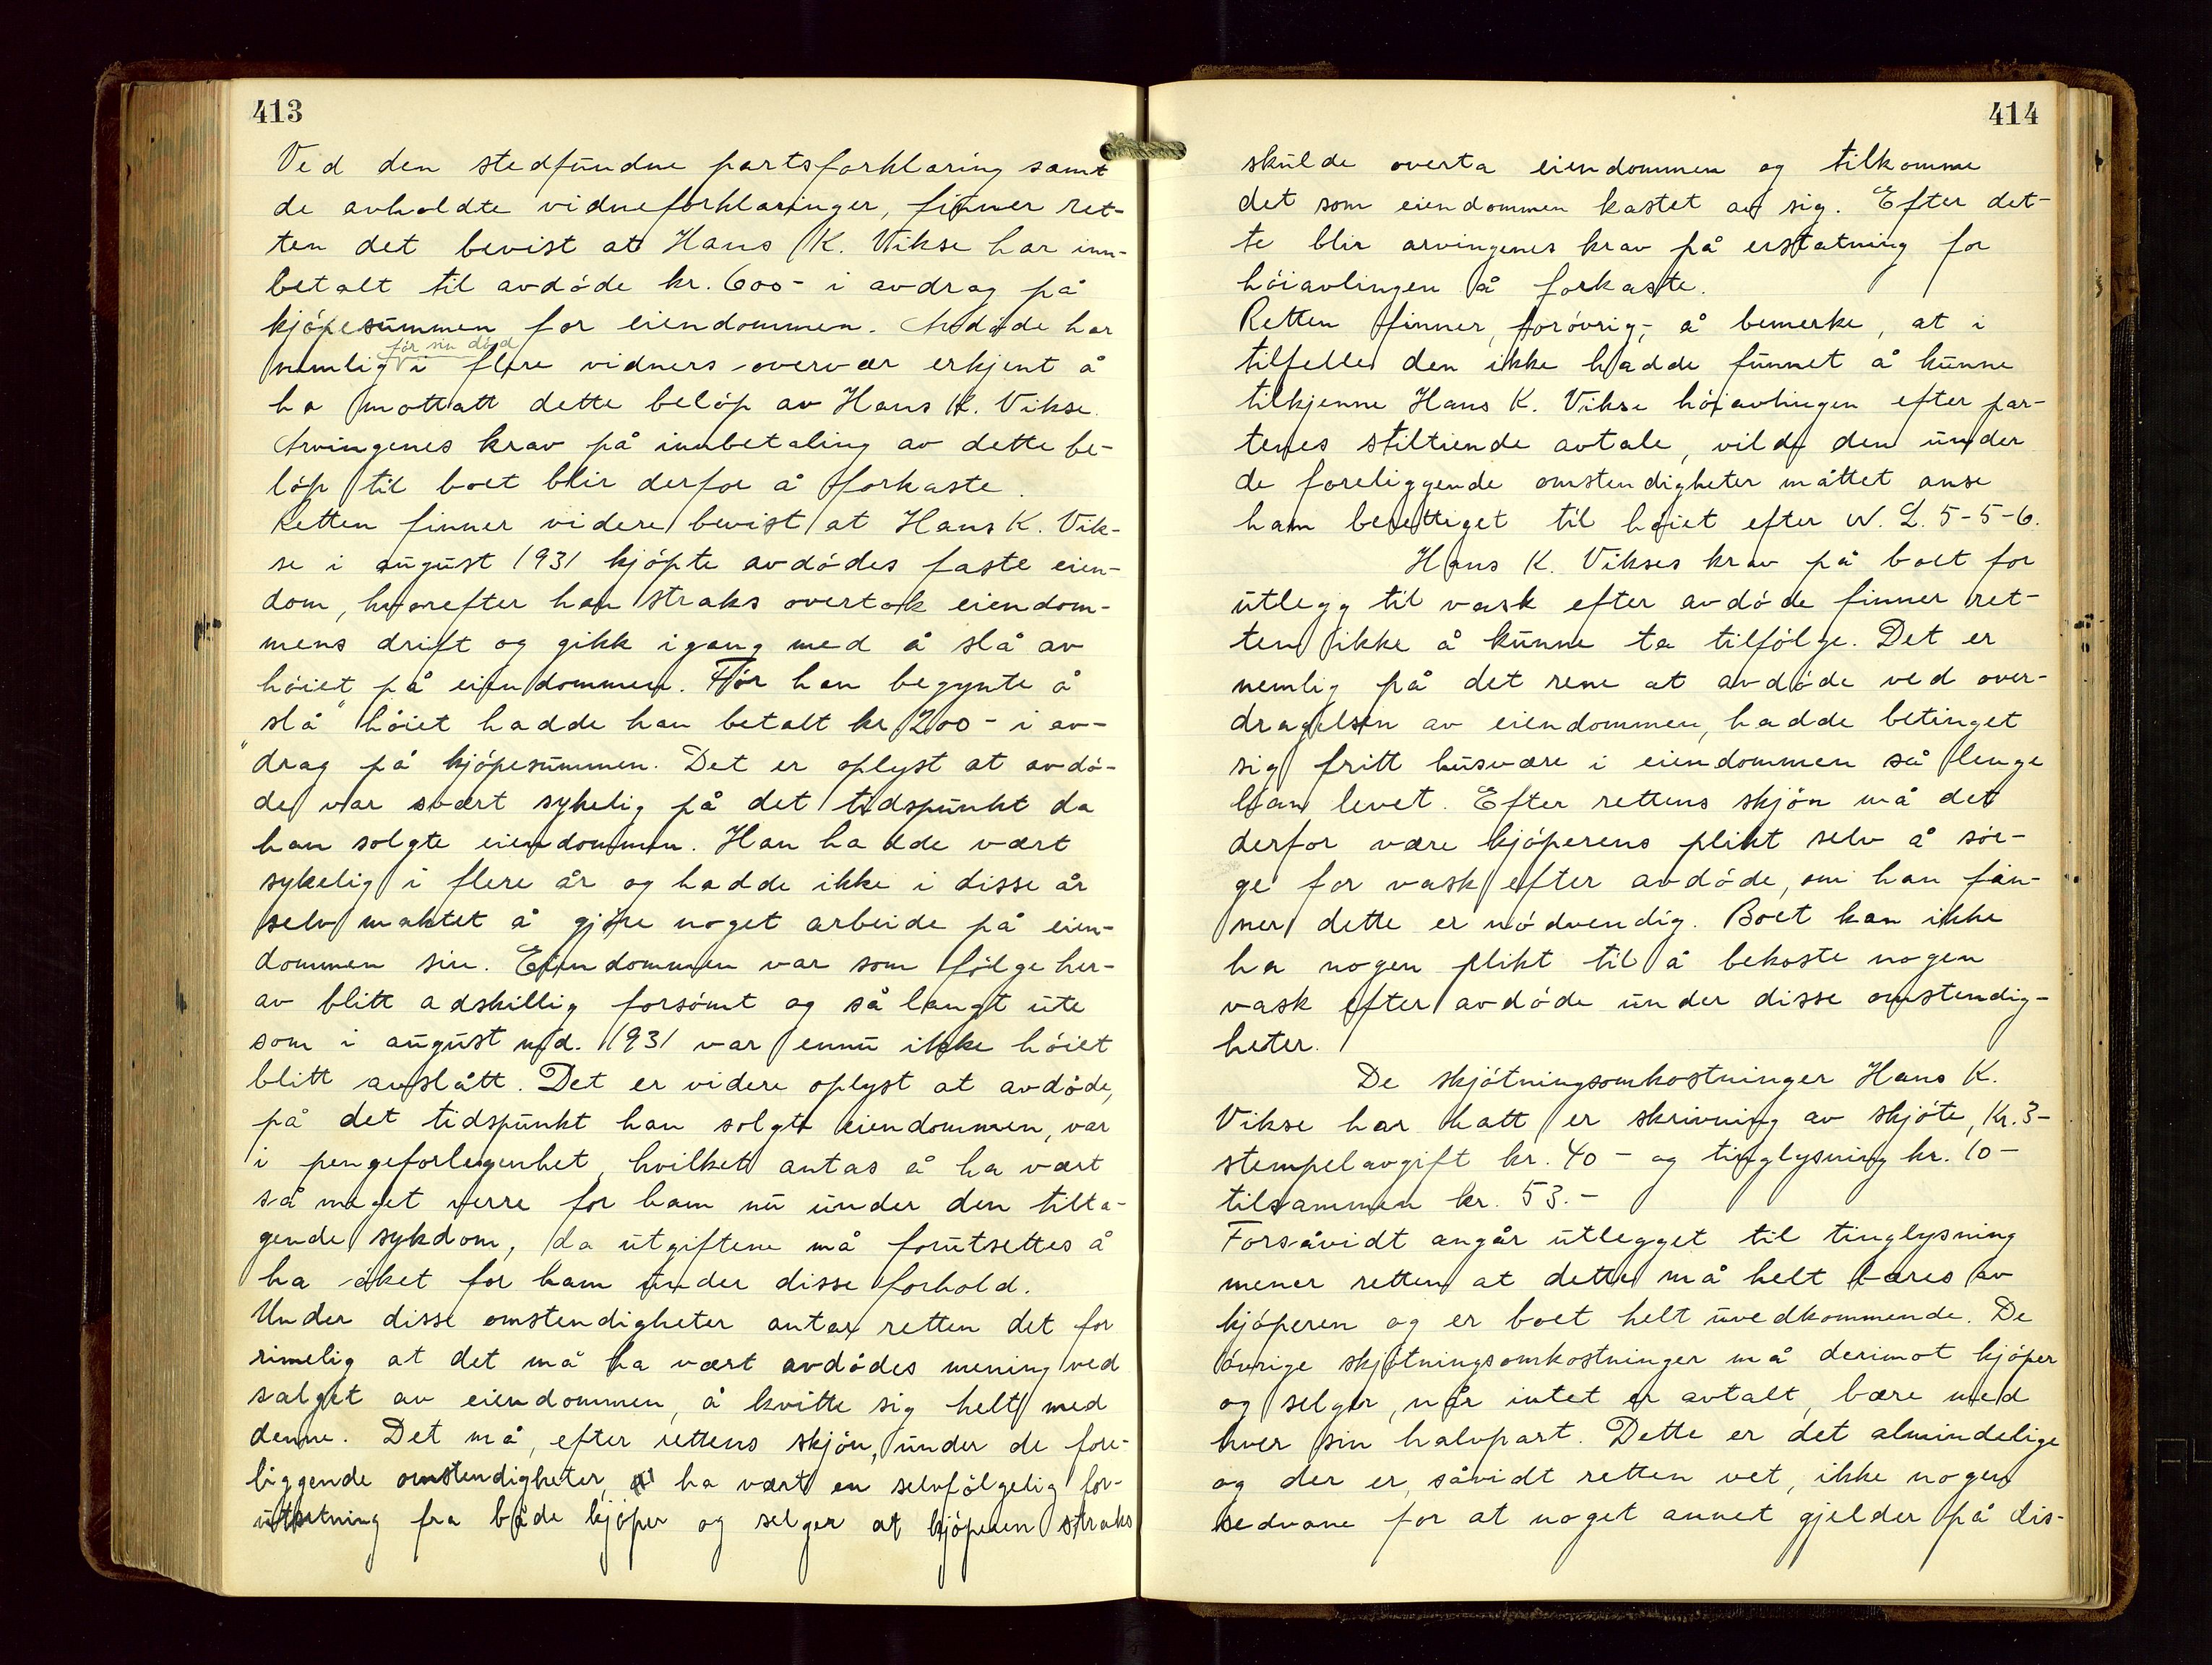 413
Ved den stedfundne partsforklaring samt
de avholdte vidneforklaringer, finner ret-
ten det bevist at Hans K. Vikse har inn-
betalt til avdøde kr. 600- i avdrag på
kjøpesummen for eiendommen. Avdøde har
før sin død
nemlig i flere vidners overvær erkjent å
ha mottatt dette beløp av Hans K. Vikse.
Arvingenes krav på innbetaling av dette be-
løp til boet blir derfor å forkaste.
Retten finner videre bevist at Hans K. Vik-
se i august 1931 kjøpte avdødes faste eien-
dom, hvorefter han straks overtok eiendom-
mens drift og gikk igang med å slå av
høiet på eiendommen. Før han begynte å
slå høiet hadde han betalt kr 200- i av-
drag på kjøpesummen. Det er oplyst at avdø-
de var svært sykelig på det tidspunkt da
han solgte eiendommen. Han hadde vært
sykelig i flere år og hadde ikke i disse år
selv maktet å gjøre noget arbeide på eien-
dommen sin. Eiendommen var som følge her-
av blitt adskillig forsømt og så langt ute
som i august md. 1931 var ennu ikke høiet
blitt avslått. Det er videre oplyst at avdøde,
på det tidspunkt han solgte eiendommen, var
i pengeforlegenhet, hvilket antas å ha vært
så meget verre for ham nu under den tilta-
gende sykdom, da utgiftene må forutsettes å
ha øket for ham under disse forhold.
Under disse omstendigheter antar retten det for
rimelig at det må ha vært avdødes mening ved
salget av eiendommen, å kvitte sig helt med
denne. Det må, efter rettens skjøn, under de fore-
liggende omstendigheter, ha vært en selvfølgelig for-
utsetning fra både kjøper og selger at kjøperen straks
414
skulde overta eiendommen og tilkomme
det som eiendommen kastet av sig. Efter det-
te blir arvingenes krav på erstatning for
høiavlingen å forkaste.
Retten finner, forøvrig, å bemerke, at i
tilfelle den ikke hadde funnet å kunne
tilkjenne Hans K. Vikse høiavlingen efter par-
tenes stiltiende avtale, vilde den under
de foreliggende omstendigheter måttet anse
ham berettiget til høiet efter N. L. 5-5-6.
Hans K. Vikses krav på boet for
utlegg til vask efter avdøde finner ret-
ten ikke å kunne ta tilfølge. Det er
nemlig på det rene at avdøde ved over-
dragelsen av eiendommen, hadde betinget
sig fritt husvære i eiendommen så lenge
han levet. Efter rettens skjøn må det
derfor være kjøperens plikt selv å sør-
ge for vask efter avdøde, om han fin-
ner dette er nødvendig. Boet kan ikke
ha nogen plikt til å bekoste nogen
vask efter avdøde under disse omstendig-
heter.
De skjøtningsomkostninger Hans K.
Vikse har hatt er skrivning av skjøte, Kr. 3-
stempelavgift kr. 40- og tinglysning kr. 10-
tilsammen kr. 53.-
Forsåvidt angår utlegget til tinglysning
mener retten at dette må helt bæres av
kjøperen og er boet helt uvedkommende. De
øvrige skjøtningsomkostninger må derimot kjøper
og selger, når intet er avtalt, bære med
hver sin halvpart. Dette er det almindelige
og der er, såvidt retten vet, ikke nogen
sedvane for at noget annet gjelder på dis-